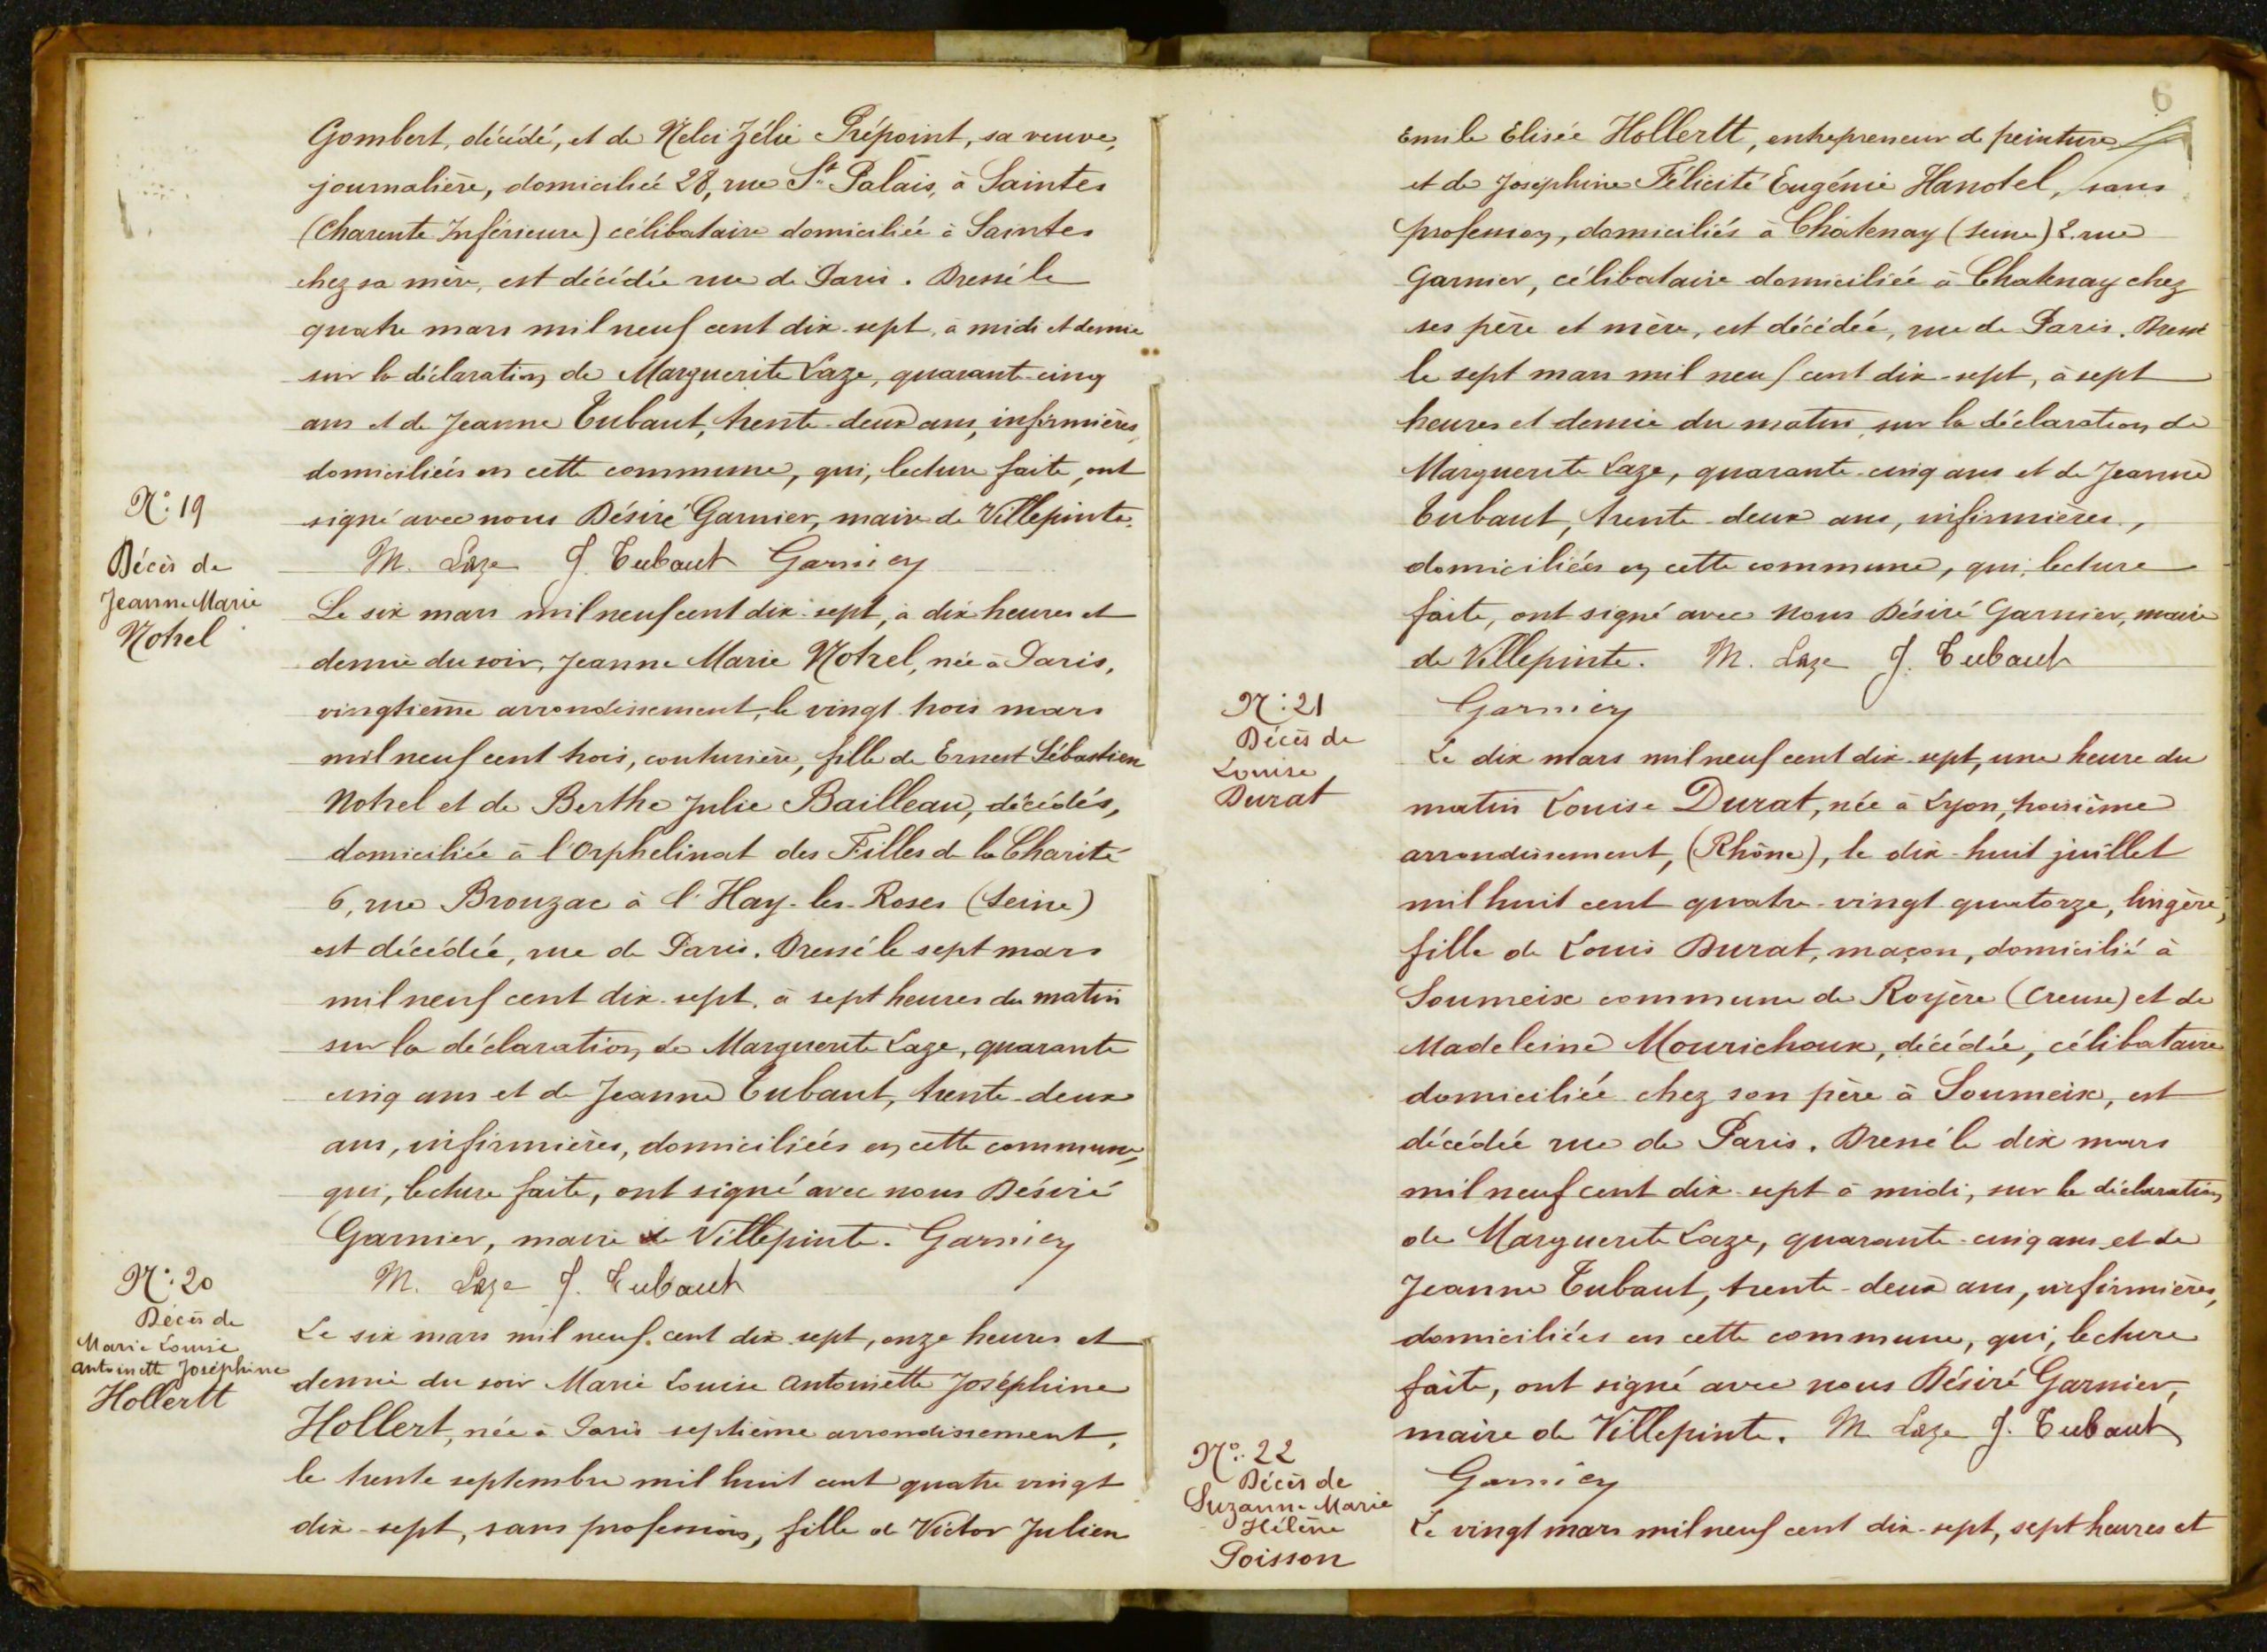 Gombert, décédé, et de Nelci Zélie Prépoint, sa veuve,
journalière, domiciliée 28, rue St Palais, à Saintes
(Charente Inférieure) célibataire domiciliée à Saintes
chez sa mère, est décédée rue de Paris. Dressé le
quatre mars mil neuf cent dix-sept, à midi et demie
sur la déclaration de Marguerite Laze, quarante-cinq
ans et de Jeanne Tubaut, trente-deux ans, infirmières,
domiciliées en cette commune, qui, lecture faite, ont
signé avec nous Désiré Garnier, maire de Villepinte.
M. Laze J. Tubaut Garnier
N°: 19
Décès de
Jeanne Marie
Notrel
Le six mars mil neuf cent dix-sept, à dix heures et
demie du soir, Jeanne Marie Notrel, née à Paris,
vingtième arrondissement, le vingt trois mars
mil neuf cent trois, couturière, fille de Ernest Sébastien
Notrel et de Berthe Julie Bailleau, décédés,
domiciliée à l'Orphelinat des Filles de la Charité
6, rue Brouzac à l'Hay-les-Roses (Seine)
est décédée, rue de Paris. Dressé le sept mars
mil neuf cent dix-sept, à sept heures du matin
sur la déclaration de Marguerite Laze, quarante
cinq ans et de Jeanne Tubaut, trente-deux
ans, infirmières, domiciliées en cette commune,
qui, lecture faite, ont signé avec nous Désiré
Garnier, maire de Villepinte. Garnier
M. Laze J. Tubaut
N°: 20
Décès de
Marie Louise
Antoinette Joséphine
Hollertt
Le six mars mil neuf cent dix-sept, onze heures et
demie du soir Marie Louise Antoinette Joséphine
Hollert, née à Paris septième arrondissement,
le trente septembre mil huit cent quatre vingt
dix-sept, sans profession, fille de Victor Julien
6
Emile Elisée Hollertt, entrepreneur de peinture
et de Joséphine Félicité Eugénie Hanotel, sans
profession, domiciliés à Châtenay (Seine) 2. rue
Garnier, célibataire domiciliée à Chatenay chez
ses père et mère, est décédée, rue de Paris. Dressé
le sept mars mil neuf cent dix-sept, à sept
heures et demie du matin, sur la déclaration de
Marguerite Laze, quarante-cinq ans et de Jeanne
Tubaut, trente-deux ans, infirmières,
domiciliées en cette commune, qui, lecture
faite, ont signé avec nous Désiré Garnier, maire
de Villepinte. M. Laze J. Tubaut
Garnier
N°: 21
Décès de
Louise
Durat
Le dix mars mil neuf cent dix-sept, une heure du
matin Louise Durat, née à Lyon, troisième
arrondissement, (Rhône), le dix-huit juillet
mil huit cent quatre-vingt quatorze, lingère,
fille de Louis Durat, maçon, domicilié à
Soumeix commune de Royère (Creuse) et de
Madeleine Mourichoux, décédée, célibataire
domiciliée chez son père à Soumeix, est
décédée rue de Paris. Dressé le dix mars
mil neuf cent dix-sept à midi, sur la déclaration
de Marguerite Laze, quarante-cinq ans et de
Jeanne Tubaut, trente-deux ans, infirmières,
domiciliées en cette commune, qui, lecture
faite, ont signé avec nous Désiré Garnier,
maire de Villepinte. M. Laze J. Tubaut
Garnier
N°: 22
Décès de
Suzanne Marie
Hélène
Poisson
Le vingt mars mil neuf cent dix-sept, sept heures et